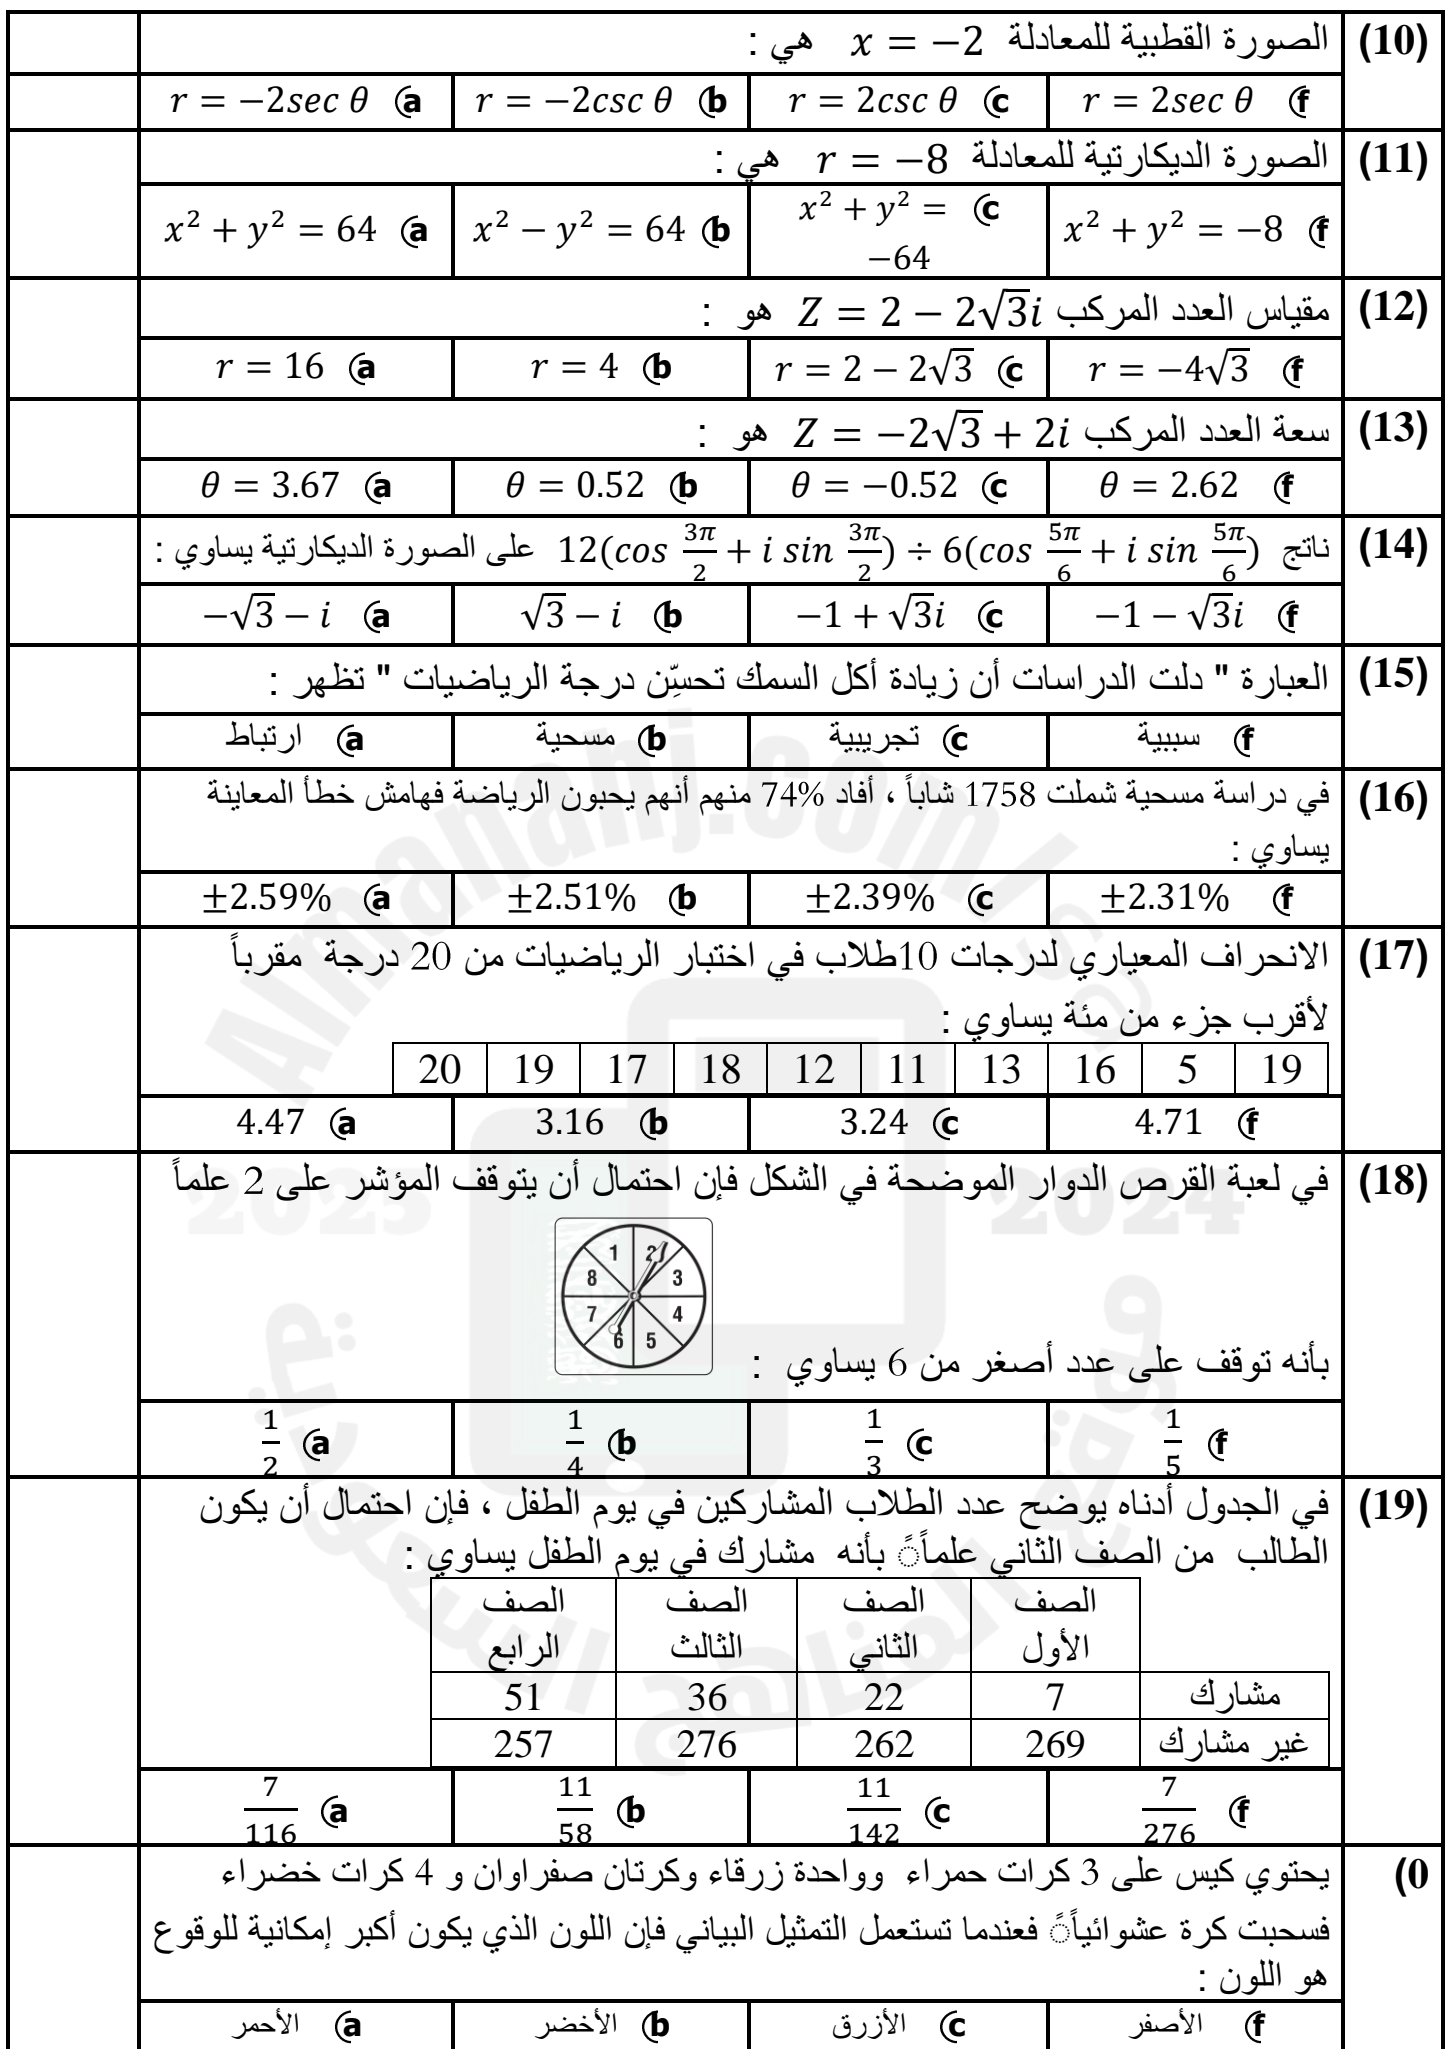 (10) الصورة القطبية للمعادلة x = −2 هي :
f) r = 2sec θ c) r = 2csc θ b) r = −2csc θ a) r = −2sec θ
(11) الصورة الديكارتية للمعادلة r = −8 هي :
f) x² + y² = −8 c) x² + y² = −64 b) x² − y² = 64 a) x² + y² = 64
(12) مقياس العدد المركب Z = 2 − 2√3i هو :
f) r = −4√3 c) r = 2 − 2√3 b) r = 4 a) r = 16
(13) سعة العدد المركب Z = −2√3 + 2i هو :
f) θ = 2.62 c) θ = −0.52 b) θ = 0.52 a) θ = 3.67
(14) ناتج 12(cos 3π/2 + i sin 3π/2) ÷ 6(cos 5π/6 + i sin 5π/6) على الصورة الديكارتية يساوي :
f) −1 − √3i c) −1 + √3i b) √3 − i a) −√3 − i
(15) العبارة " دلت الدراسات أن زيادة أكل السمك تحسِّن درجة الرياضيات " تظهر :
f) سببية c) تجريبية b) مسحية a) ارتباط
(16) في دراسة مسحية شملت 1758 شاباً ، أفاد 74% منهم أنهم يحبون الرياضة فهامش خطأ المعاينة
يساوي :
f) ±2.31% c) ±2.39% b) ±2.51% a) ±2.59%
(17) الانحراف المعياري لدرجات 10طلاب في اختبار الرياضيات من 20 درجة مقرباً
لأقرب جزء من مئة يساوي :
20 19 17 18 12 11 13 16 5 19
f) 4.71 c) 3.24 b) 3.16 a) 4.47
(18) في لعبة القرص الدوار الموضحة في الشكل فإن احتمال أن يتوقف المؤشر على 2 علماً
1 2 3 4 5 6 7 8
بأنه توقف على عدد أصغر من 6 يساوي :
f) 1/5 c) 1/3 b) 1/4 a) 1/2
(19) في الجدول أدناه يوضح عدد الطلاب المشاركين في يوم الطفل ، فإن احتمال أن يكون
الطالب من الصف الثاني علماًً بأنه مشارك في يوم الطفل يساوي :
الصف الأول الصف الثاني الصف الثالث الصف الرابع
مشارك 7 22 36 51
غير مشارك 269 262 276 257
f) 7/276 c) 11/142 b) 11/58 a) 7/116
0) يحتوي كيس على 3 كرات حمراء وواحدة زرقاء وكرتان صفراوان و 4 كرات خضراء
فسحبت كرة عشوائياًً فعندما تستعمل التمثيل البياني فإن اللون الذي يكون أكبر إمكانية للوقوع
هو اللون :
f) الأصفر c) الأزرق b) الأخضر a) الأحمر
Almanahj.com/sa
2025 2024
موقع المناهج السعودية